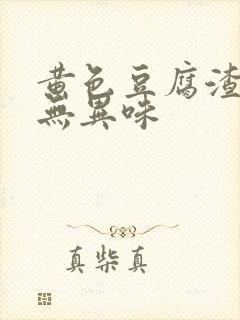 黄色豆腐渣
無異味
真柴真